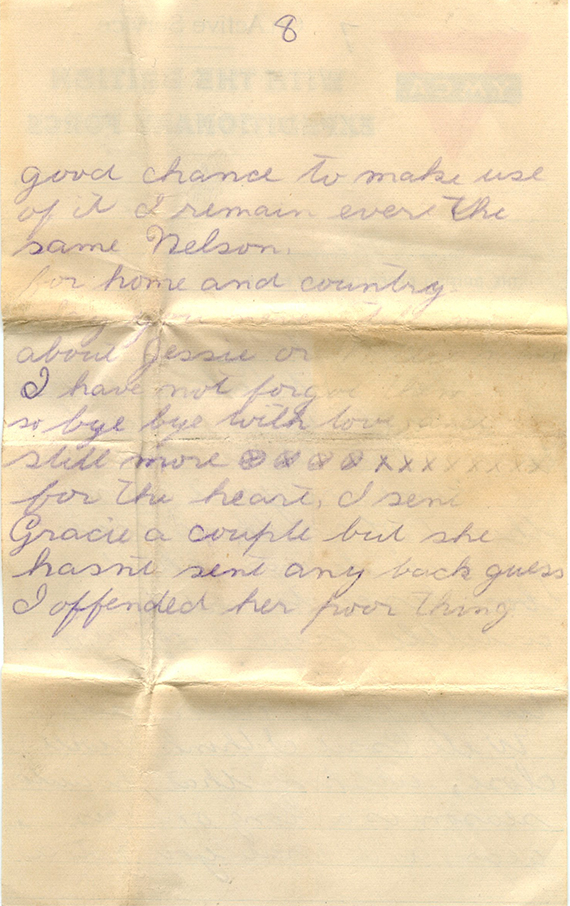 8
good chance to make use
of it I remain evere the
same Nelson.
for home and country
about Jessie or
I have not forgot
so bye bye with love
still more ⊗⊗⊗⊗xxxxxxxxx
for the heart, I sent
Gracie a couple but she
hasnt sent any back guess
I offended her poor thing